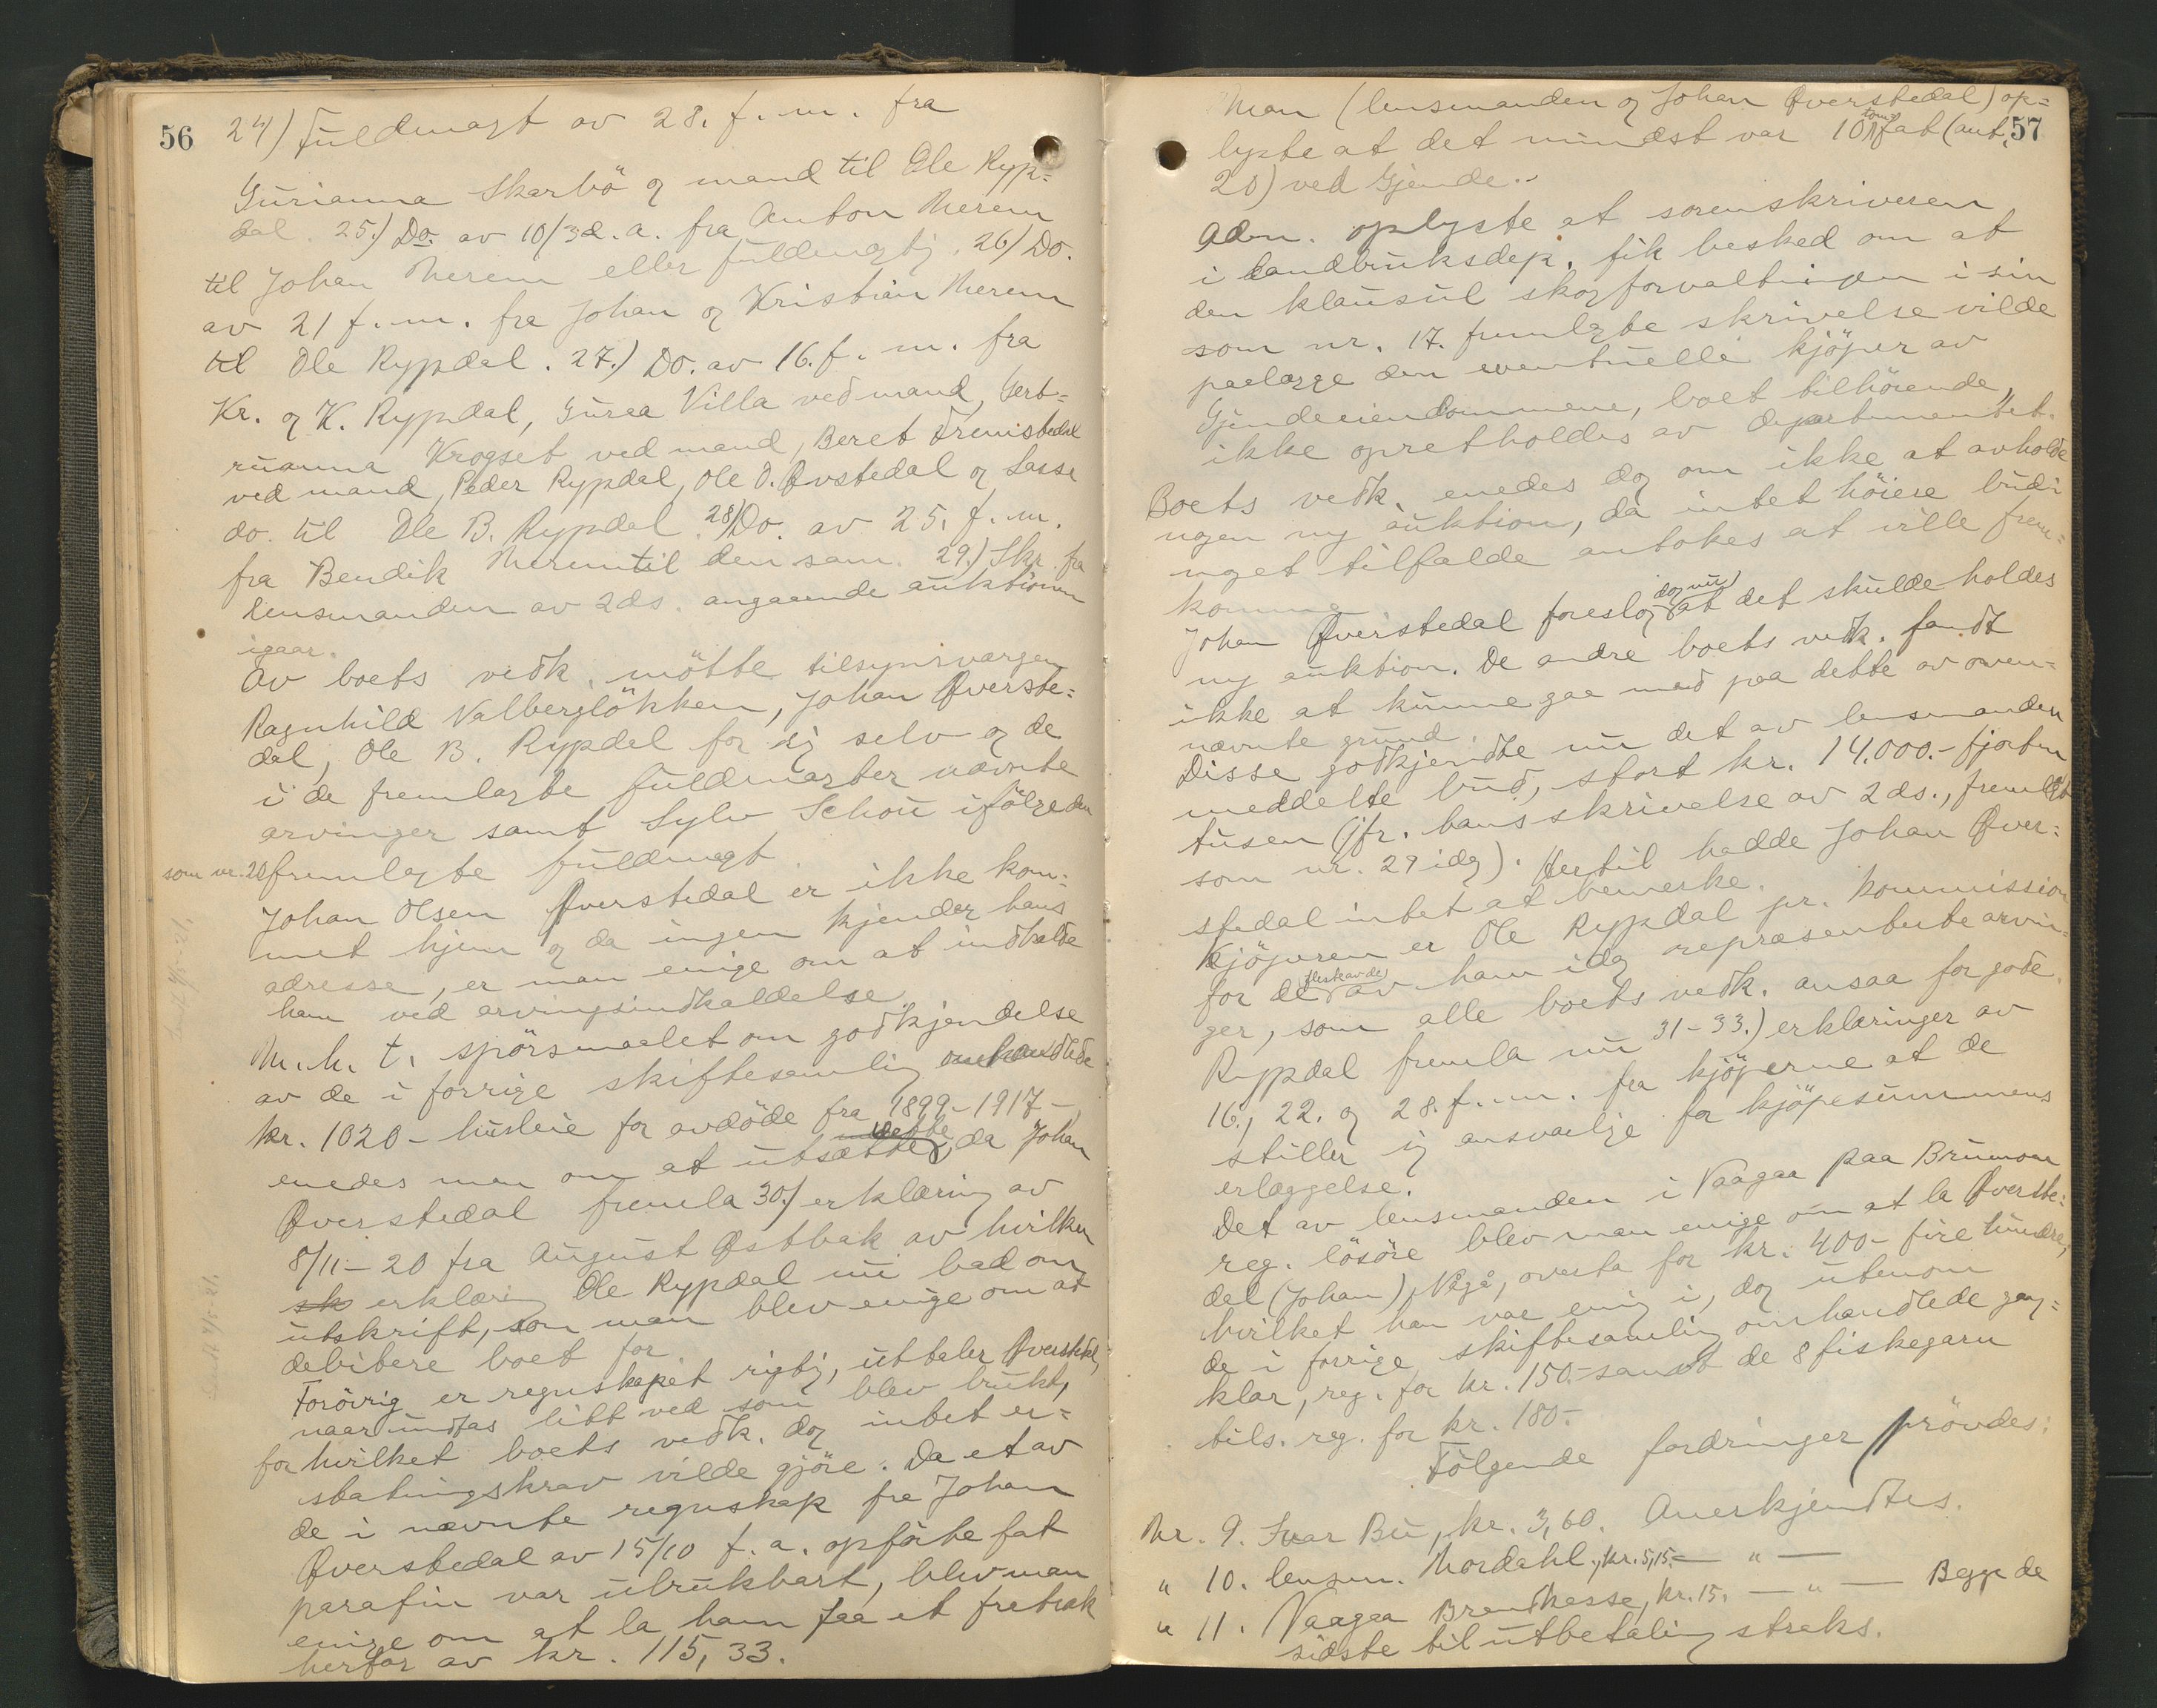 56
24) Fuldmagt av 28. f. m. fra
Gurianna Skarbö og mand til Ole Ryp=
dal. 25.) Do. av 10/3 d. a. fra Anton Merem
til Johan Merem eller fuldmegtig. 26) Do.
av 21 f. m. fra Johan og Kristian Merem
til Ole Rypdal. 27.) Do. av 16. f. m. fra
Kr. og K. Rypdal, Guraa Villa ved mand, Gert=
ruanna Krogset ved mand, Beret Fremstedal
ved mand, Peder Rypdal, Ole O. Øvstedal og Lasse
do. til Ole B. Rypdal. 28) Do. av 25. f. m.
fra Bendik Merem til den sam. 29.) Skr. fra
lensmanden av 2 ds. angaaende auktionen
igaar.
Av boets vedk. mötte tilsynsvergen
Ragnhild Valberglökken, Johan Øverste=
dal, Ole B. Rypdal for sig selv og de
i de fremlagte fuldmagter nævnte
arvinger samt Sylv Schou ifölge den
som nr. 20 fremlagte fuldmagt.
Johan Olsen Øverstedal er ikke kom=
met hjem og da ingen kjender hans
adresse, er man enige om at indkalde
ham ved arvingsindkaldelse.
M. h. t. spörsmaalet om godkjendelse
av de i forrige skiftesamling omhandlede
kr. 1020 - husleie for avdöde fra 1899-1917 -
enedes man om at utsætte dette, da Johan
Øverstedal fremla 30.) erklæring av
8/11-20 fra August Østbak av hvilken
sk erklæring Ole Rypdal nu bad om
utskrift, som man blev enige om at
debitere boet for.
Forövrig er regnskapet rigtig, uttaler Øverstedal,
naar undtas litt ved som blev brukt,
for hvilket boets vedk. dog intet er=
statningskrav vilde gjöre. Da et av
de i nævnte regnskap fra Johan
Øverstedal av 15/10 f. a. opförte fat
parafin var ubrukbart, blev man
enige om at la ham faa et fratrak
herfor av kr. 115,33.
57
Man (lensmanden og Johan Øverstedal) op=
lyste at det mindst var 10 tom fat (ant.
20) ved Gjende.
Adm. oplyste at sorenskriveren
i landbruksdep. fik besked om at
den klausul skogforvaltningen i sin
som nr. 17. fremlagte skrivelse vilde
paalægge den eventuelle kjöper av
Gjendeeiendommene, boet tilhörende,
ikke opretholdes av departementet.
Boets vedk. enedes dog om ikke at avholde
nogen ny auktion, da intet höiere bud i
noget tilfælde antokes at ville frem=
komme.
Johan Øverstedal foreslog dog nu at det skulde holdes
ny auktion. De andre boets vedk. fandt
ikke at kunne gaa med paa dette av oven=
nævnte grund.
Disse godkjendte nu det av lensmanden
meddelte bud, stort kr. 14.000.- fjorten
tusen (jfr. hans skrivelse av 2 ds., fremlagt
som nr. 29 idag). Hertil hadde Johan Øver=
stedal intet at bemerke.
Kjöperen er Ole Rypdal pr. kommission
for de fleste av de av ham idag repræsenterte arvin=
ger, som alle boets vedk. ansaa for gode.
Rypdal fremla nu 31-33.) erklæringer av
16., 22. og 28. f. m. fra kjöperne at de
stiller sig ansvarlige for kjöpesummens
erlæggelse.
Det av lensmanden i Vaagaa paa Brumoen
reg. lösöre blev man enige om at la Øverste=
dal (Johan), Vågå, overta for kr. 400 - fire hundre,
hvilket han var enig i, dog utenom
de i forrige skiftesamling omhandlede gang=
klær, reg. for kr. 150.- samt de 8 fiskegarn
tils. reg. for kr. 180.-
Fölgende fordringer prövdes:
Nr. 9. Ivar Bu, kr. 3,60. Anerkjendtes.
" 10. lensm. Nordahl, kr. 5,15. — " —
" 11. Vaagaa Brandkasse, kr. 15. — " — Begge de
sidste til utbetaling straks.